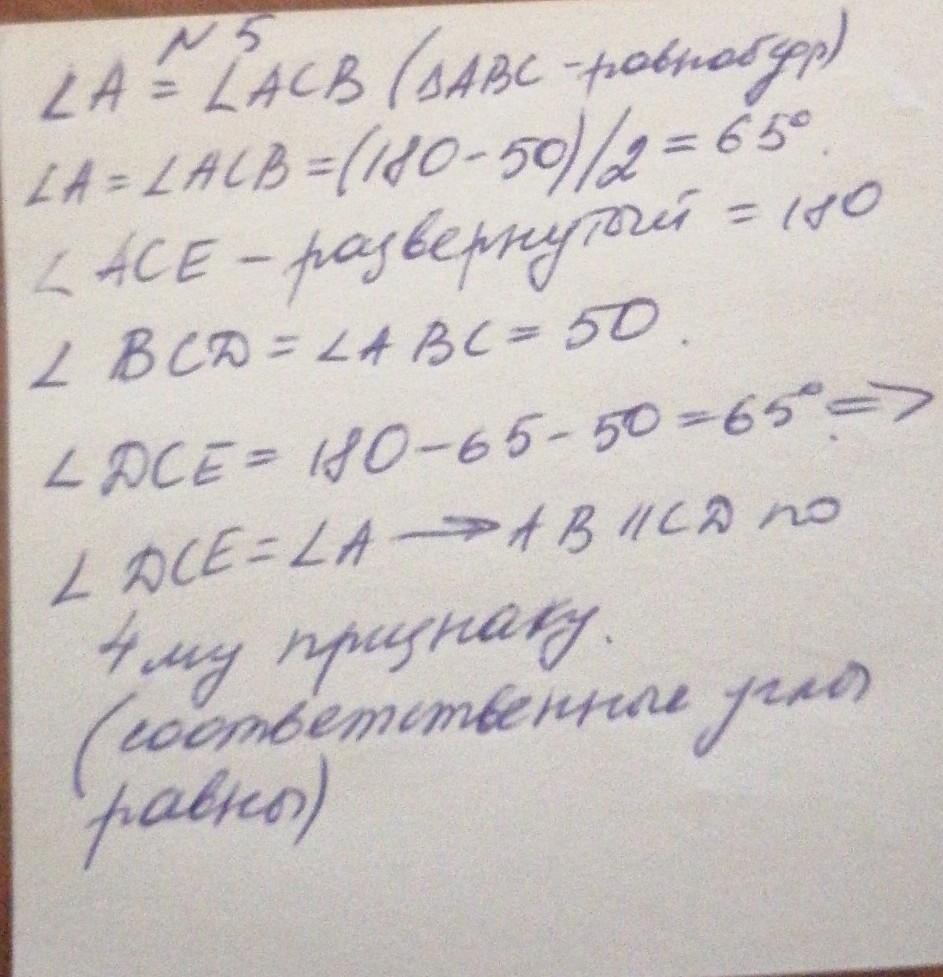 N 5
∠A = ∠ACB (ΔABC - равнобдр)
∠A = ∠ACB = (180 - 50)/2 = 65°.
∠ACE - развернутый = 180
∠ BCD = ∠ABC = 50.
∠DCE = 180 - 65 - 50 = 65° =>
∠DCE = ∠A → AB || CD по
4му признаку.
(соответственные углы
равны)